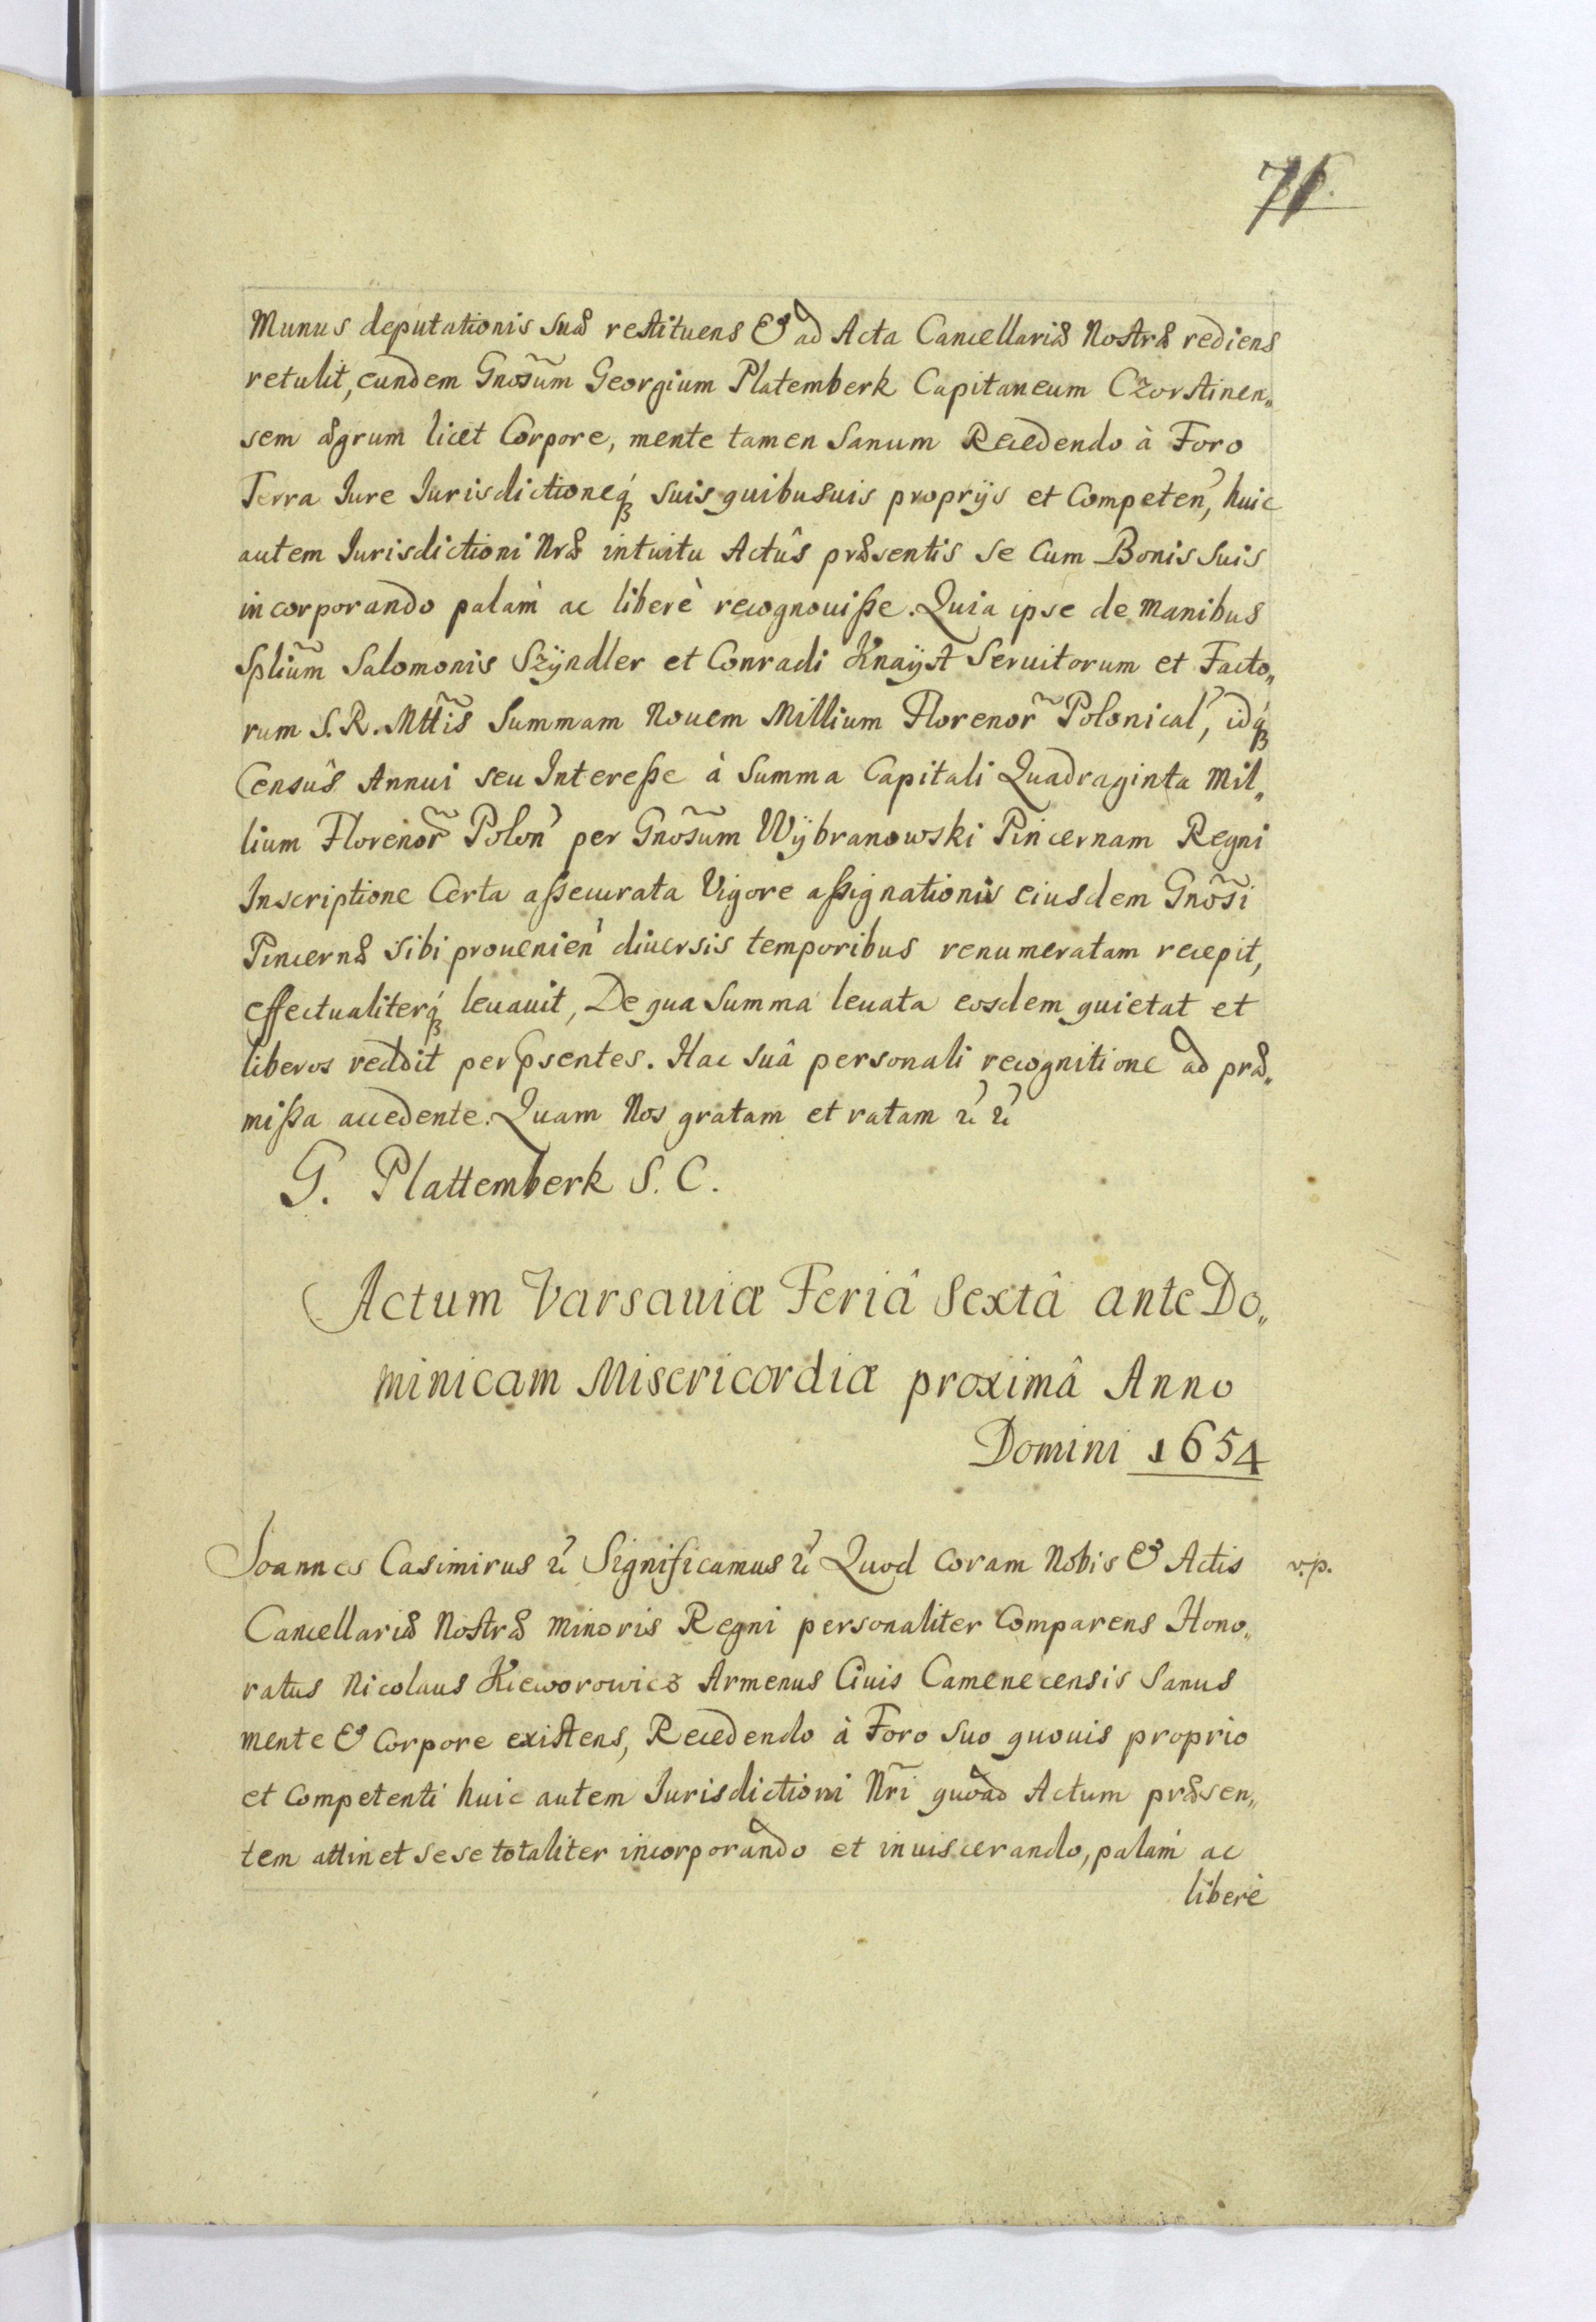 71.
Munus deputationis suæ restituens & ad Acta Cancellariæ Nostræ rediens
retulit, eundem Gnosũm Georgium Platemberk Capitaneum Czorstinen„
sem ægrum licet Corpore, mente tamen Sanum Recedendo à Foro
Terra Iure Iurisdictioneq́ꝫ suis quibusuis proprijs et Competen̛, huic
autem Iurisdictioni Nræ intuitu Actûs præsentis se Cum Bonis suis
incorporando palam̀ ac liberè recognouiße. Quia ipse de manibus
Splium̃ Salomonis Szÿndler et Conradi Knaÿst Seruitorum et Facto„
rum S. R. Mttis̃ Summam Nouem Millium Florenor̃ Polonical̛, idq́ꝫ
Censûs Annui seu Intereße à Summa Capitali Quadraginta Mil„
lium Florenor̃ Polon̛ per Gnosũm Wÿbranowski Pincernam Regni
Inscriptione Certa aßecurata Vigore aßignationis eiusdem Gnos̃i
Pincernæ sibi prouenien̛ diuersis temporibus renumeratam recepit,
effectualiterq́ꝫ leuauit, De qua Summa leuata eosdem quietat et
liberos reddit per ꝑsentes. Hac suâ personali recognitione ad præ„
mißa accedente. Quam Nos gratam et ratam ꝛc̛ ꝛc̛
G. Plattemberk S. C.
Actum Varsauiæ Feriâ Sextâ ante Do„
minicam Misericordiæ proximâ Anno
Domini 1654
Joannes Casimirus ꝛc̛ Significamus ꝛc̛ Quod coram Nobis & Actis
v.p.
Cancellariæ Nostræ minoris Regni personaliter Comparens Hono„
ratus Nicolaus Kieworowicz Armenus Ciuis Camenecensis Sanus
mente & Corpore existens, Recedendo à Foro suo quouis proprio
et Competenti huic autem Iurisdictioni Nr̃i quoad Actum præsen„
tem attinet sese totaliter incorporando et inuiscerando, palam̀ ac
liberè